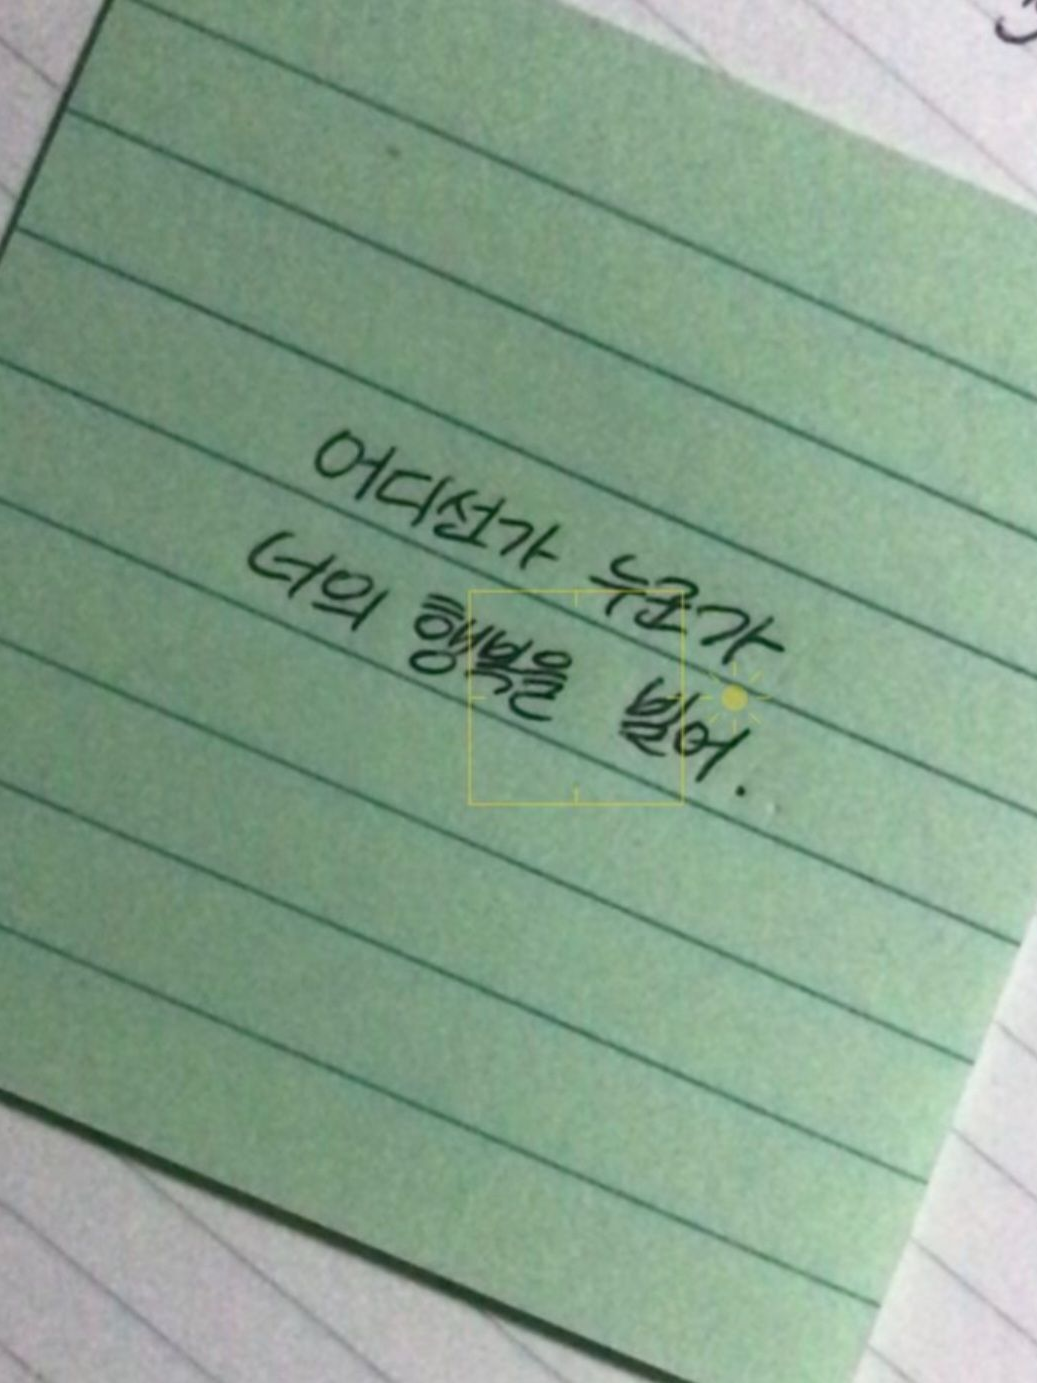 어디선가 누군가
너의 행복을 빌어.